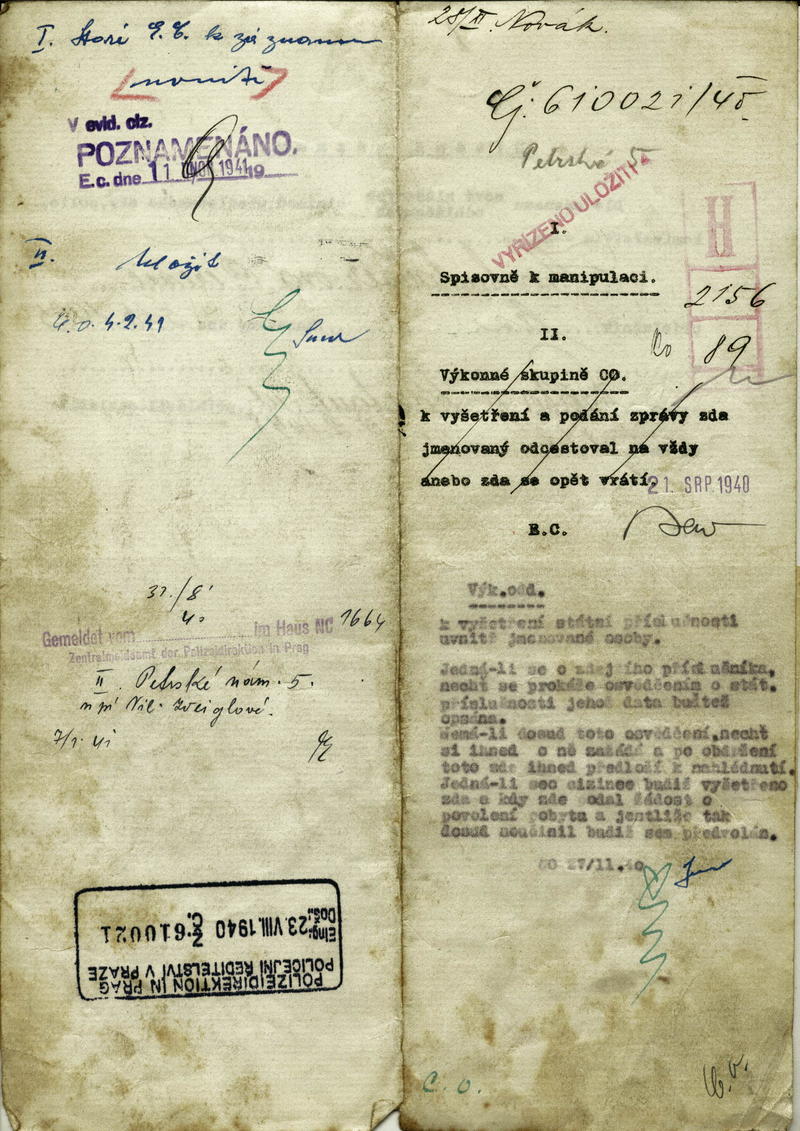 I. Staré E.C. k záznamu
V evid. ciz.
POZNAMENÁNO.
E.c. dne 11 1941 19
II. Uložit
4.2.41
31./8.
40
Gemeldet vom im Haus NC 1664
Zentralmeldeamt der Polizeidirektion in Prag
II. Petrské nám. 5.
7/1. 41
POLIZEIDIREKTION IN PRAG
POLICEJNÍ ŘEDITELSTVÍ V PRAZE
Eing.: 23. VIII. 1940 Z. 610021
Doš.: Č.
28/XI Novák.
Čj. 610021/40
Petrské 5
VYŘÍZENO ULOŽITI
I.
Spisovně k manipulaci.
H
2156
89
II.
Výkonné skupině CO.
k vyšetření a podání zprávy zda
jmenovaný odcestoval na vždy
anebo zda se opět vrátí.
21. SRP. 1940
E.C.
Výk.odd.
k vyšetření státní příslušnosti
uvnitř jmenované osoby.
Jedná-li se o zdejšího příslušníka,
nechť se prokáže osvědčením o stát.
příslušnosti jehož data buďtež
opsána.
Nemá-li dosud toto osvědčení,nechť
si ihned o ně zažádá a po obdržení
toto zde ihned předloží k nahlédnutí.
Jedná-li se o cizince budiž vyšetřeno
zda a kdy zde podal žádost o
povolení pobytu a jestliže tak
dosud neučinil budiž sem předvolán.
27/11.40
C. O.